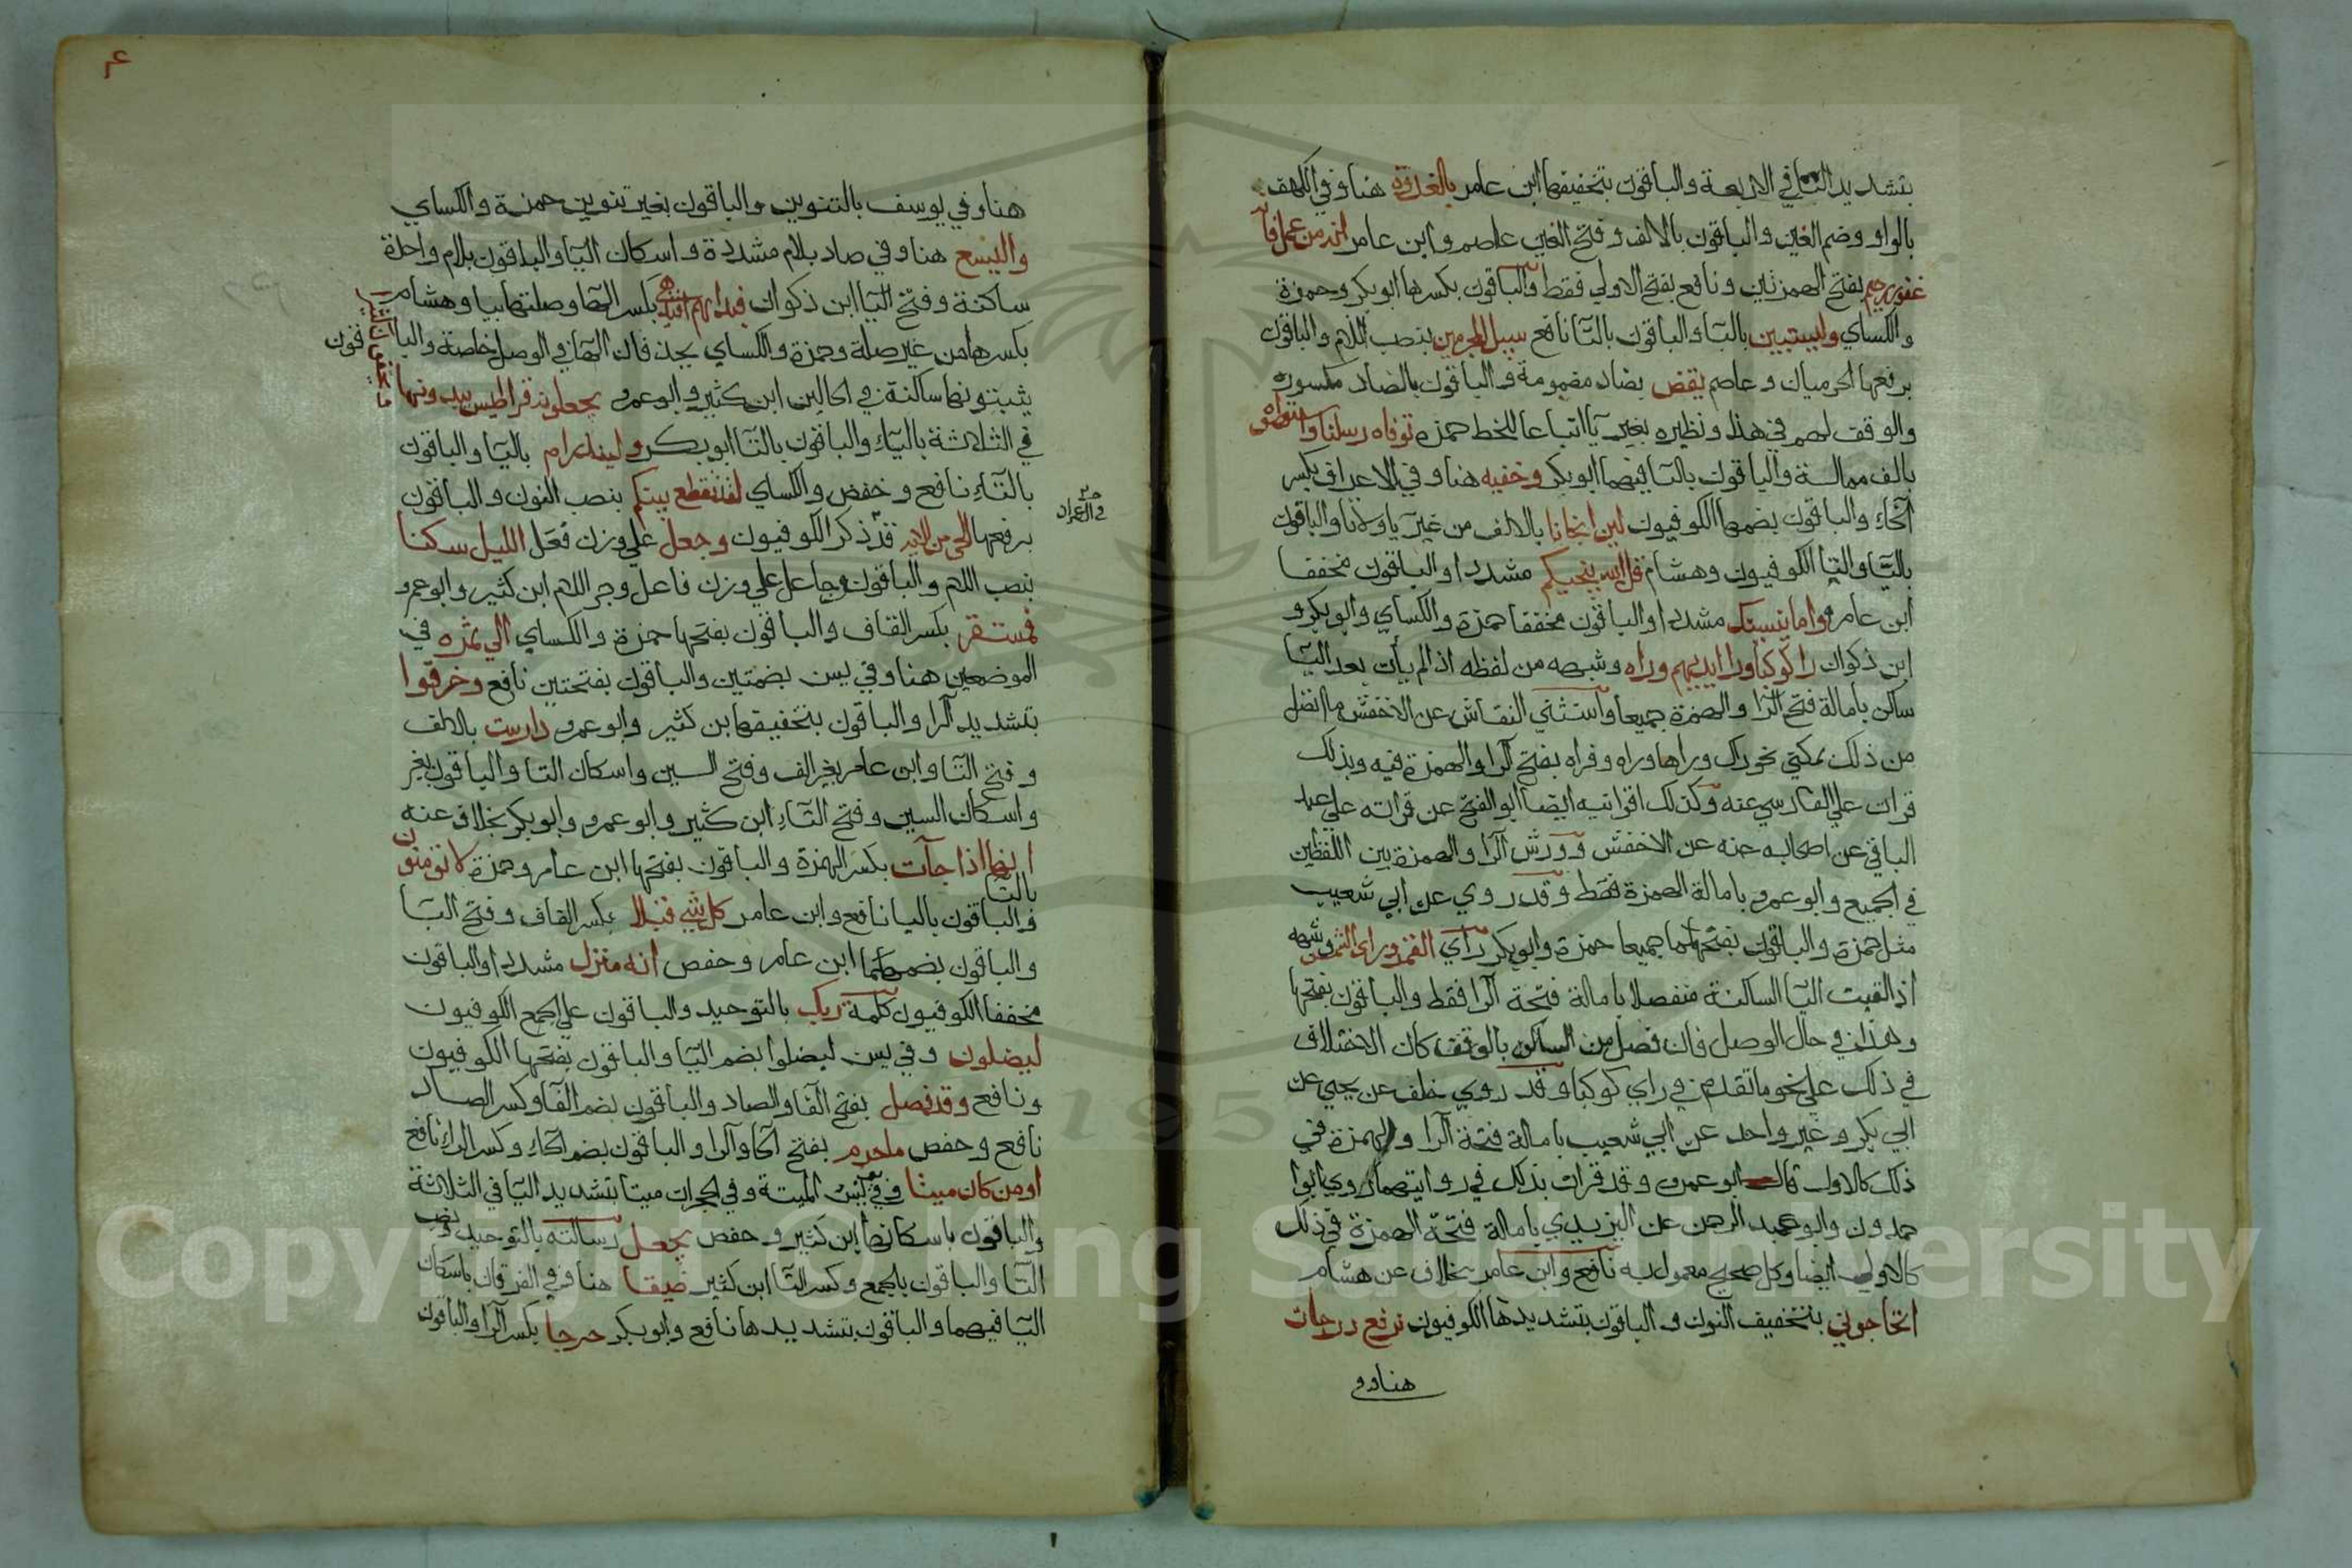 بتشديد التا في الاربعة والباقون بتخفيفها ابن عامر بالغدوة هنا وفي الكهف
بالواو وضم الغين والباقون بالالف وفتح الغين عاصم وابن عامر انه من عمل فانه
غفور رحيم بفتح الهمزتين ونافع بفتح الاولي فقط والباقون بكسرها ابو بكر وحمزة
والكساي وليستبين باليا والباقون بالتا نافع سبيل المجرمين بنصب اللام والباقون
برفعها الحرميان وعاصم يقص بصاد مضمومة والباقون بالضاد مكسورة
والوقف لهم في هذا ونظيره بغير يا اتباعا للخط حمزة توفاه رسلنا واستهواه
بالف ممالة والباقون بالتا فيهما ابو بكر وخفية هنا وفي الاعراف بكسر
الخاء والباقون بضمها الكوفيون لين انجانا بالالف من غير يا ولا تا والباقون
باليا والتا الكوفيون وهشام قل الله ينجيكم مشددا والباقون مخففا
ابن عامر واما ينسينك مشددا والباقون مخففا حمزة والكساي وابو بكر و
ابن ذكوان را كوكبا ورا ايديهم وراه وشبهه من لفظه اذا لم يات بعد اليا
ساكن بامالة فتح الرا والهمزة جميعا واستثني النقاش عن الاخفش ما اتصل
من ذلك بمكني نحو راك وراها وراه وفراه بفتح الرا والهمزة فيه وبذلك
قرات علي الفارسي عنه وكذلك اقرانيه ايضا ابو الفتح عن قراته علي عبد
الباقي عن اصحابه عنه عن الاخفش وورش الرا والهمزة بين اللفظين
في الجميع وابو عمرو بامالة الهمزة فقط وقد روي عن ابي شعيب
مثل حمزة والباقون بفتحهما جميعا حمزة وابو بكر راي القمر وراي الشمس وشبهه
اذا لقيت اليا الساكنة منفصلا بامالة فتحة الرا فقط والباقون بفتحها
وهذا في حال الوصل فان فصل من الساكن بالوقف كان الاختلاف
في ذلك علي نحو ما تقدم في راي كوكبا وقد روي خلف عن يحيي عن
ابي بكر وغير واحد عن ابي شعيب بامالة فتحة الرا والهمزة في
ذلك كالاول قال ابو عمرو وقد قرات بذلك في روايتهما وروي ابوا
حمدون وابو عبد الرحمن عن اليزيدي بامالة فتحة الهمزة في ذلك
كالاول ايضا وكل صحيح معمول به نافع وابن عامر بخلاف عن هشام
اتحاجوني بتخفيف النون والباقون بتشديدها الكوفيون نرفع درجات
هنا وفي
هنا وفي يوسف بالتنوين والباقون بغير تنوين حمزة والكساي
واليسع هنا وفي صاد بلام مشددة واسكان اليا والباقون بلام واحدة
ساكنة وفتح اليا ابن ذكوان فبهداهم اقتده بكسر الها وصلتها بيا وهشام
بكسرها من غير صلة وحمزة والكساي يحذفان الها في الوصل خاصة والباقون
يثبتونها ساكنة في الحالين ابن كثير وابو عمرو يجعلونه قراطيس يبدونها
في الثلاثة بالياء والباقون بالتا ابو بكر ولينذر ام باليا والباقون
بالتاء نافع وحفص والكساي لقد تقطع بينكم بنصب النون والباقون
برفعها الحي من الميت قد ذكر الكوفيون وجعل علي وزن فعل الليل سكنا
بنصب اللام والباقون وجاعل علي وزن فاعل وجر اللام ابن كثير وابو عمرو
فمستقر بكسر القاف والباقون بفتحها حمزة والكساي الي ثمره في
الموضعين هنا وفي يس بضمتين والباقون بفتحتين نافع وخرقوا
بتشديد الرا والباقون بتخفيفها ابن كثير وابو عمرو دارست بالالف
وفتح التا وابن عامر بغير الف وفتح السين واسكان التا والباقون بغير
واسكان السين وفتح التاء ابن كثير وابو عمرو وابو بكر بخلاف عنه
انها اذا جآت بكسر الهمزة والباقون بفتحها ابن عامر وحمزة لا تؤمنون
بالتا
والباقون باليا نافع وابن عامر كل شي قبلا بكسر القاف وفتح البا
والباقون بضمهما ابن عامر وحفص انه منزل مشددا والباقون
مخففا الكوفيون كلمة ربك بالتوحيد والباقون علي الجمع الكوفيون
ليضلون وفي يس ليضلوا بضم اليا والباقون بفتحها الكوفيون
ونافع وقد فصل بفتح الفا والصاد والباقون بضم الفا وكسر الصاد
نافع وحفص ما حرم بفتح الحا والرا والباقون بضم الحاء وكسر الراء نافع
او من كان ميتا وفي يس الميتة وفي الحجرات ميتا بتشديد اليا في الثلاثة
والباقون باسكانها ابن كثير وحفص يجعل رسالته بالتوحيد ونصب
التا والباقون بالجمع وكسر التا ابن كثير ضيقا هنا وفي الفرقان باسكان
اليا فيهما والباقون بتشديدها نافع وابو بكر حرجا بكسر الرا والباقون
Copyright © King Saud University
195